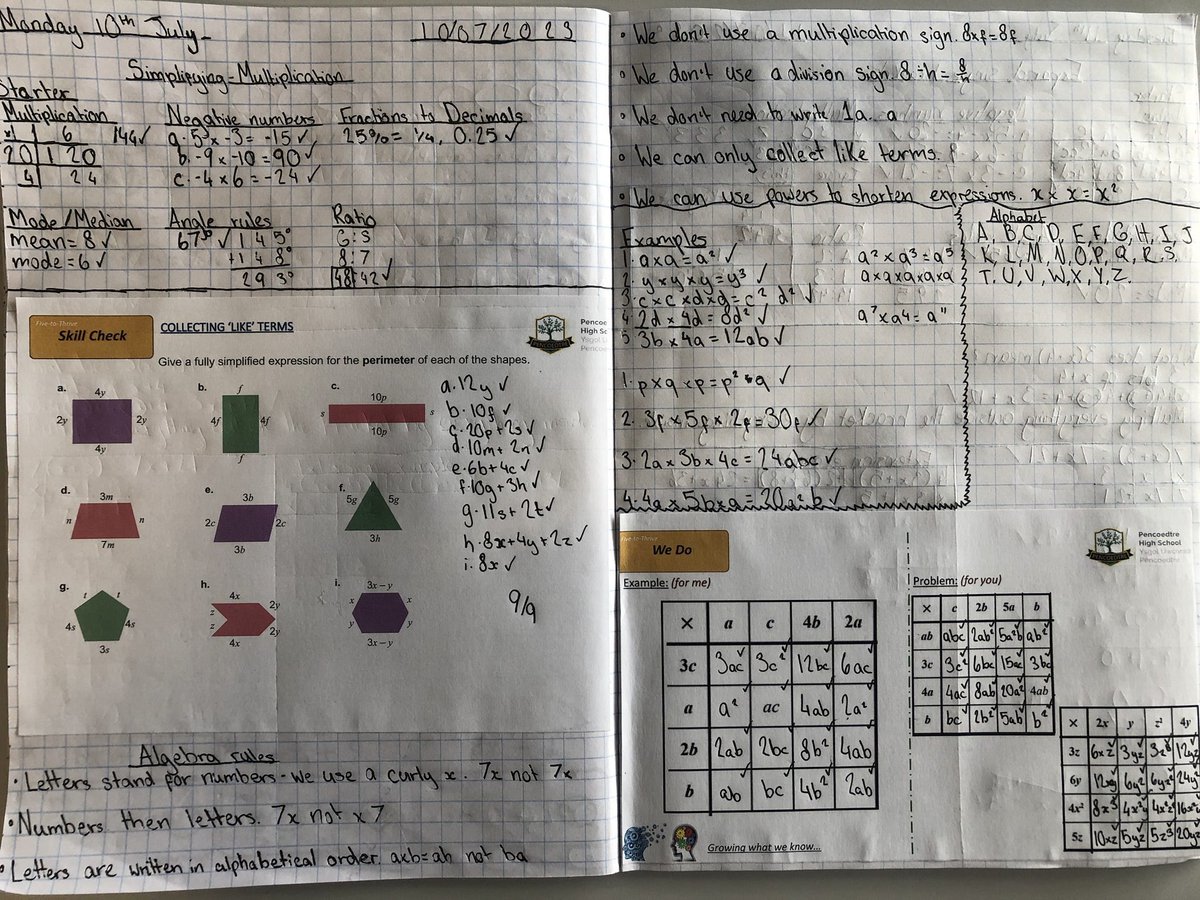 Monday 10th July
10/07/2023
Simplifying - Multiplication
Starter
Multiplication
x 1 6 144✓
20 120
4 24
Negative numbers
a. 5 x -3 = -15 ✓
b. -9 x -10 = 90 ✓
c. -4 x 6 = -24 ✓
Fractions to Decimals
25% = 1/4, 0.25 ✓
Mode/Median
mean = 8 ✓
mode = 6 ✓
Angle rules
67° ✓ 145°
+148°
293°
Ratio
6:3
8:7
48:42 ✓
Five-to-Thrive
Skill Check
COLLECTING 'LIKE' TERMS
Give a fully simplified expression for the perimeter of each of the shapes.
a. 4y 2y 2y 4y
b. f 4f 4f f
c. 10p s s 10p
d. 3m n n 7m
e. 3b 2c 2c 3b
f. 5g 5g 3h
g. t t 4s 4s 3s
h. 4x 2y z z 2y 4x
i. 3x – y x x y y 3x – y
a. 12y ✓
b. 10f ✓
c. 20p + 2s ✓
d. 10m + 2n ✓
e. 6b + 4c ✓
f. 10g + 3h ✓
g. 11s + 2t ✓
h. 8x + 4y + 2z ✓
i. 8x ✓
9/9
Algebra rules
• Letters stand for numbers - we use a curly x. 7x not 7x
• Numbers then letters. 7x not x7
• Letters are written in alphabetical order. axb = ab not ba
• We don't use a multiplication sign. 8xf = 8f
• We don't use a division sign. 8 ÷ h = 8/h
• We don't need to write 1a. a
• We can only collect like terms.
• We can use powers to shorten expressions. x × x = x²
Examples
1. a x a = a² ✓
2. y x y x y = y³ ✓
3. c x c x d x d = c² d² ✓
4. 2d x 4d = 8d² ✓
5 3b x 4a = 12ab ✓
a² x a³ = a⁵
a x a x a x a x a
a⁷ x a⁴ = a¹¹
Alphabet
A, B, C, D, E, F, G, H, I, J
K, L, M, N, O, P, Q, R, S,
T, U, V, W, X, Y, Z.
1. p x q x p = p² q ✓
2. 3f x 5f x 2f = 30f ✓
3. 2a x 3b x 4c = 24abc ✓
4. 4a x 5b x a = 20a²b ✓
Five-to-Thrive
We Do
Pencoedtre
High School
Example: (for me)
× a c 4b 2a
3c 3ac 3c² 12bc 6ac
a a² ac 4ab 2a²
2b 2ab 2bc 8b² 4ab
b ab bc 4b² 2ab
Growing what we know...
Problem: (for you)
× c 2b 5a b
ab abc 2ab² 5a²b ab²
3c 3c² 6bc 15ac 3bc
4a 4ac 8ab 20a² 4ab
b bc 2b² 5ab b²
× 2x y z² 4y
3z 6xz 3yz 3z³ 12yz
6y 12xy 6y² 6yz² 24y²
4x² 8x³ 4x²y 4x²z² 16x²y
5z 10xz 5yz 5z³ 20yz